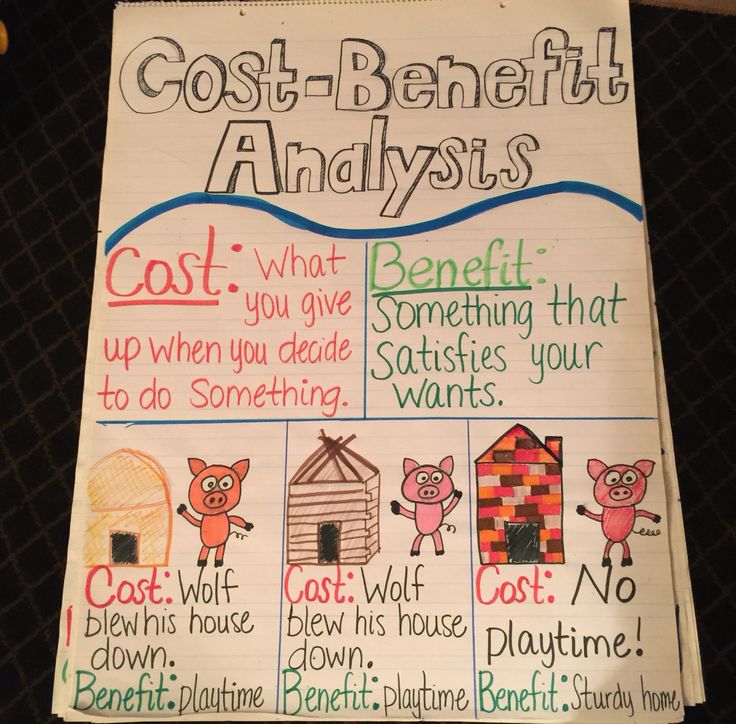 Cost-Benefit
Analysis
Cost: What
you give
up when you decide
to do something.
Benefit:
Something that
satisfies your
wants.
Cost: Wolf
blew his house
down.
Benefit: playtime
Cost: Wolf
blew his house
down.
Benefit: playtime
Cost: No
playtime!
Benefit: Sturdy home